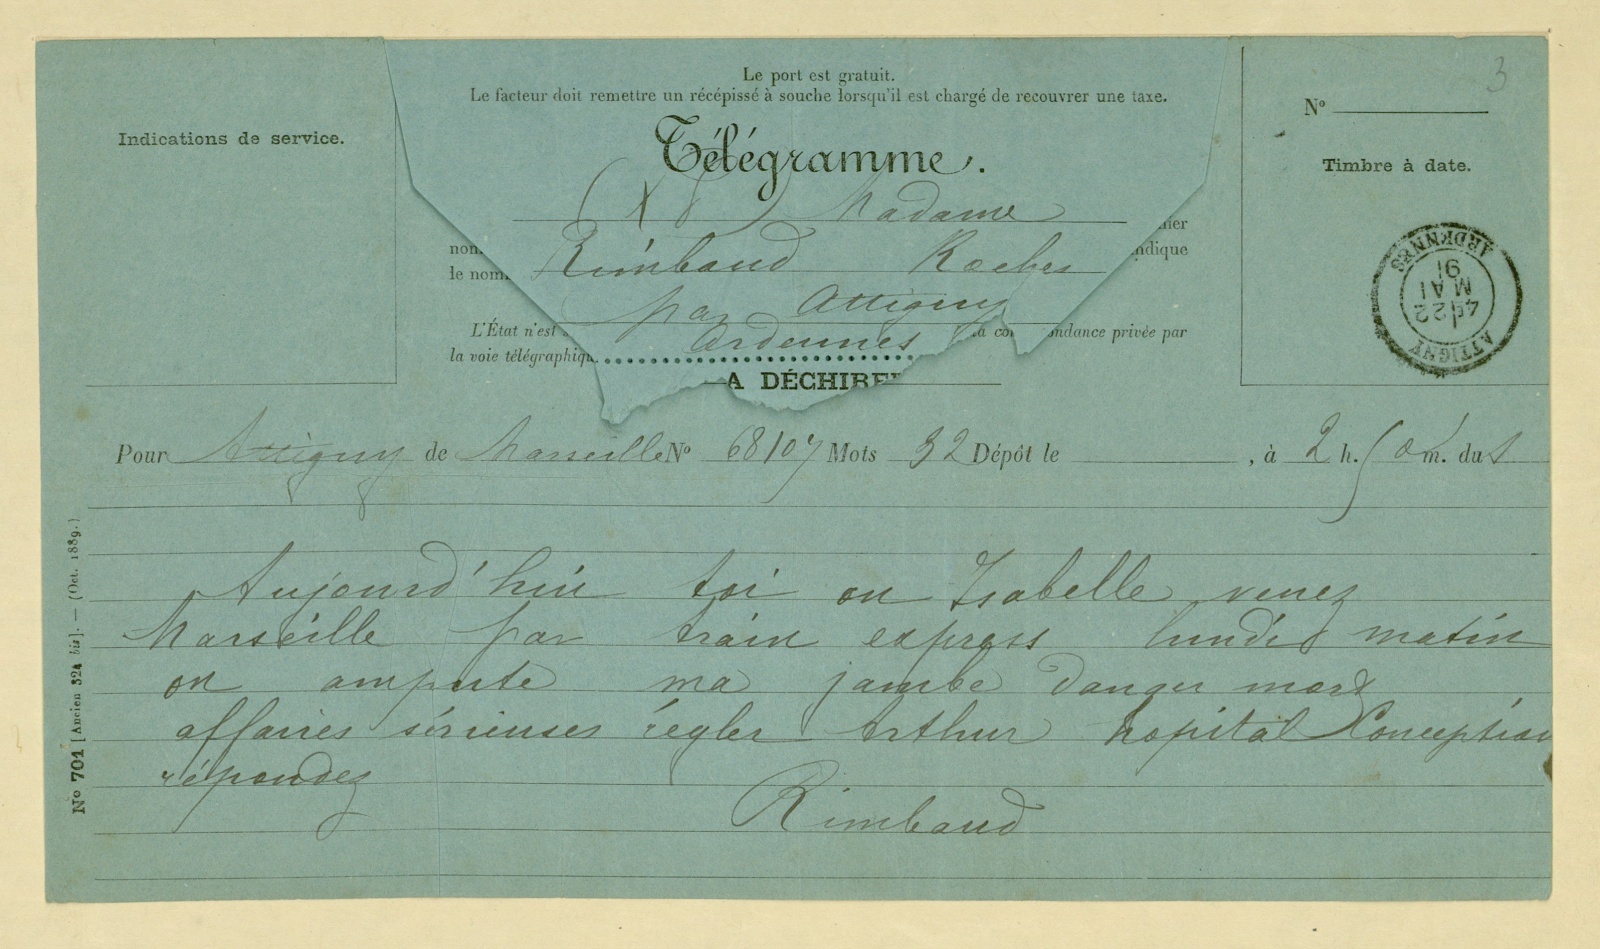 Le port est gratuit.
Le facteur doit remettre un récépissé à souche lorsqu'il est chargé de recouvrer une taxe.
3
Nº
Indications de service.
Télégramme.
Timbre à date.
Madame
Rimbaud Roches
par Attigny
Ardennes
nier
non
ndique
le nom.
L'État n'est
ndance privée par
la voie télégraphiqu
A DÉCHIRE
ATTIGNY
4E 22
MAI
91
ARDENNES
Pour Attigny de Marseille Nº 68107 Mots 32 Dépôt le , à 2 h. 50 m. du S
Aujourd'hui toi ou Isabelle venez
Marseille par train express lundi matin
on ampute ma jambe danger mort
affaires sérieuses régler Arthur hopital Conception
répondez
Rimbaud
Nº 701 [Ancien 324 bis]. — (Oct. 1889.)